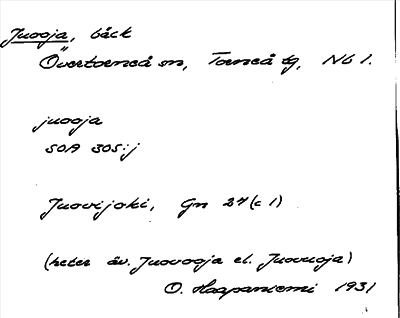 Juooja, bäck
Övertorneå sn, Torneå tg, Nb l.
juooja
SOA 305:j
Juovijoki, Gn 27 (c 1)
(heter äv. Juovooja el. Juovuoja)
O. Haapaniemi 1931